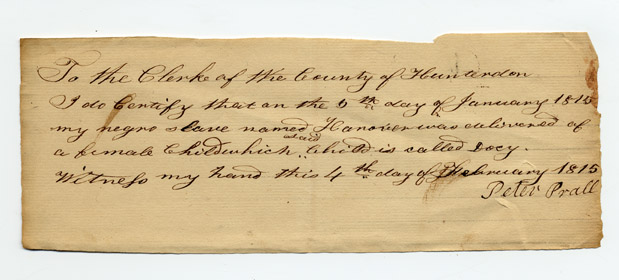 To the Clerke of the County of Hunterdon
I do Certify that on the 6th day of January 1815
my negro slave named Hanover was delivered of
said
a female Child which Child is called Docy.
Witness my hand this 4th day of February 1815
Peter Prall